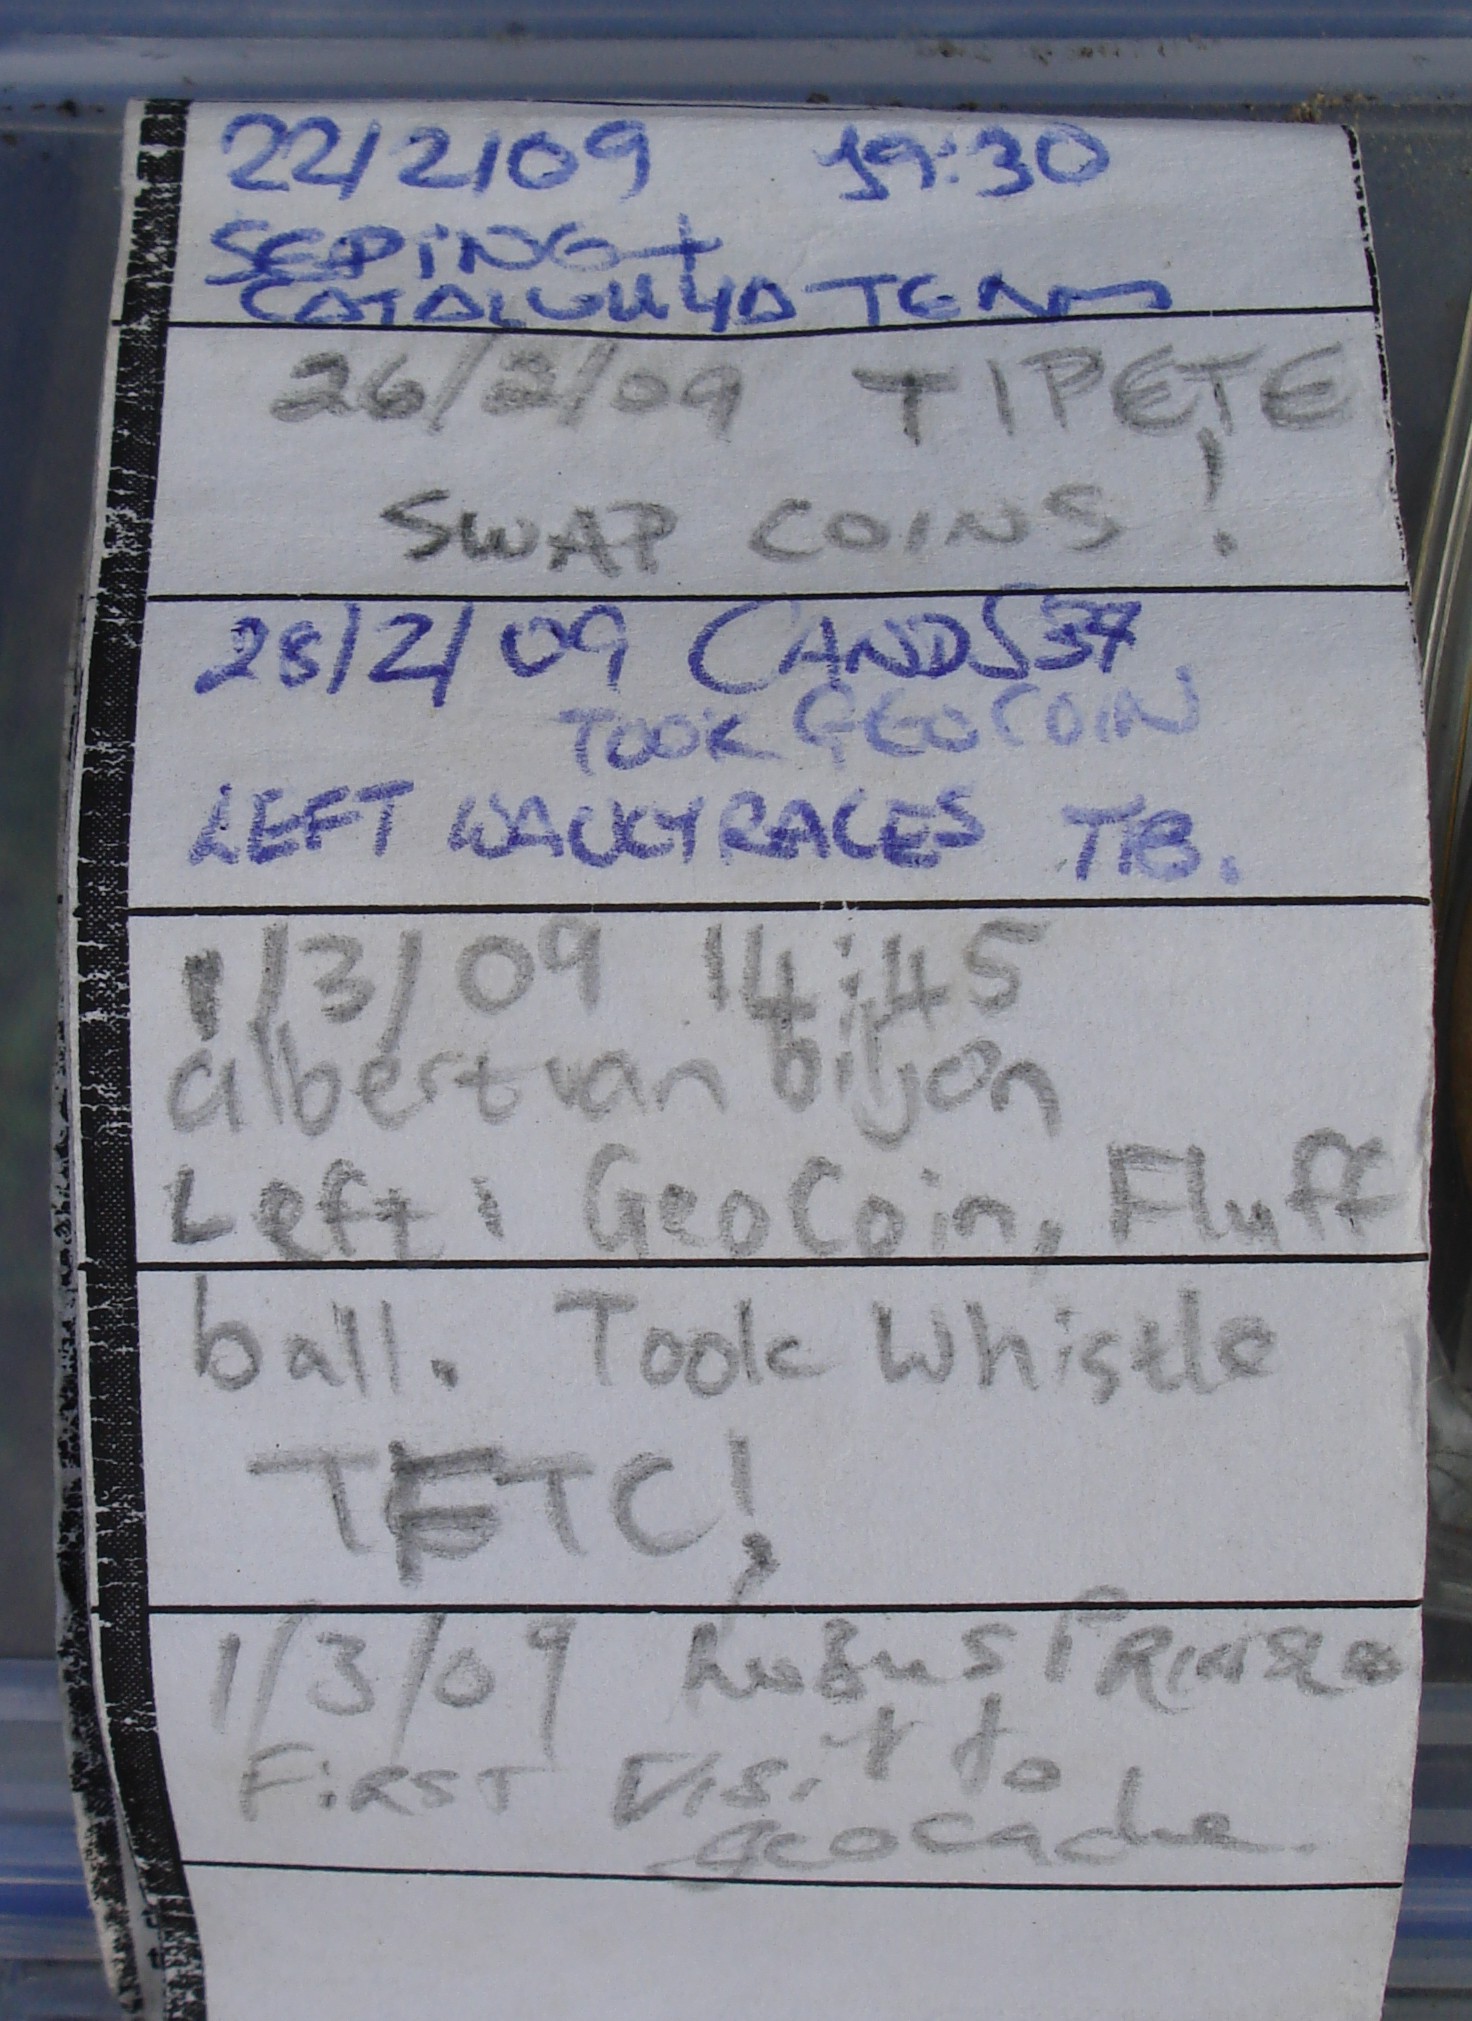 22/2/09 19:30
SEPING +
CATALUNYA TEAM
26/2/09 TIPETE
SWAP COINS!
28/2/09 CANDS37
TOOK GEOCOIN
LEFT WACKY RACES TB.
1/3/09 14:45
albert van biljon
Left: GeoCoin, Fluff
ball. Took Whistle
TFTC!
1/3/09
FIRST Visit to
geocache.